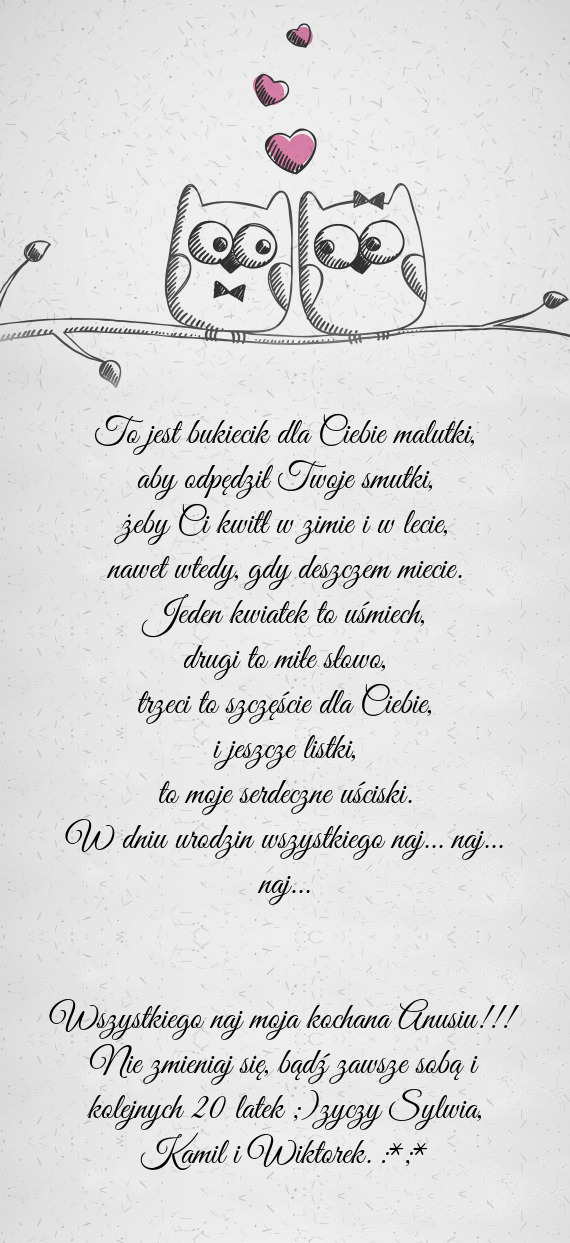 To jest bukiecik dla Ciebie malutki,
aby odpędził Twoje smutki,
żeby Ci kwitł w zimie i w lecie,
nawet wtedy, gdy deszczem miecie.
Jeden kwiatek to uśmiech,
drugi to miłe słowo,
trzeci to szczęście dla Ciebie,
i jeszcze listki,
to moje serdeczne uściski.
W dniu urodzin wszystkiego naj... naj...
naj...
Wszystkiego naj moja kochana Anusiu!!!
Nie zmieniaj się, bądź zawsze sobą i
kolejnych 20 latek ;)zyczy Sylwia,
Kamil i Wiktorek. :*;*